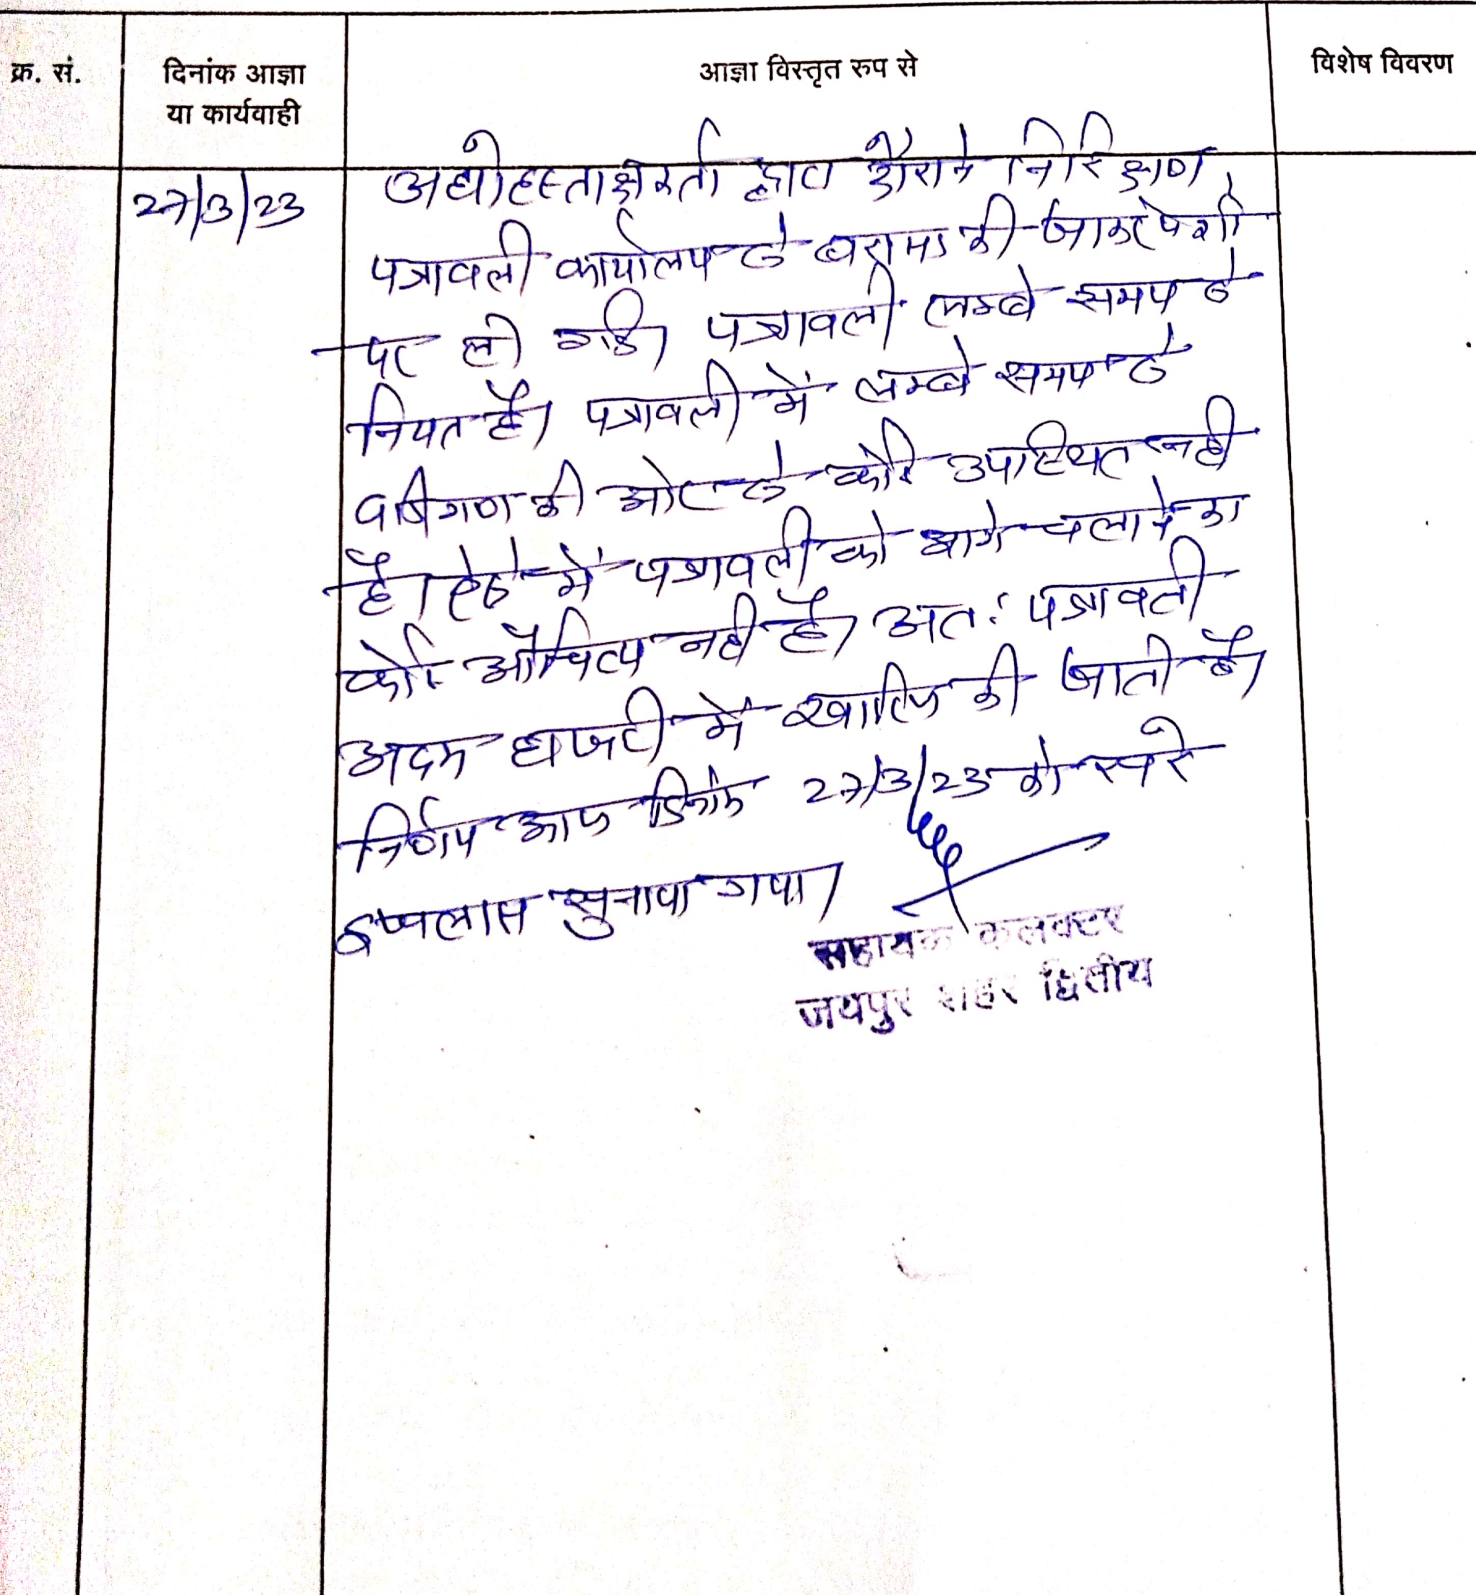 क्र. सं.
दिनांक आज्ञा
या कार्यवाही
आज्ञा विस्तृत रुप से
विशेष विवरण
27/3/23
अधोहस्ताक्षरकर्ता द्वारा दौराने निरिक्षण
पत्रावली कार्यालय से बरामद की जाकर पेशी
पर ली गई। पत्रावली लम्बे समय से
नियत है। पत्रावली में लम्बे समय से
वादीगण की ओर से कोई उपस्थित नही
है। ऐसे में पत्रावली को आगे चलाने का
कोई औचित्य नही है। अतः पत्रावली
अदम हाजरी में खारिज की जाती है।
निर्णय आज दिनांक 27/3/23 को सरे
इजलास सुनाया गया।
सहायक कलक्टर
जयपुर शहर द्वितीय